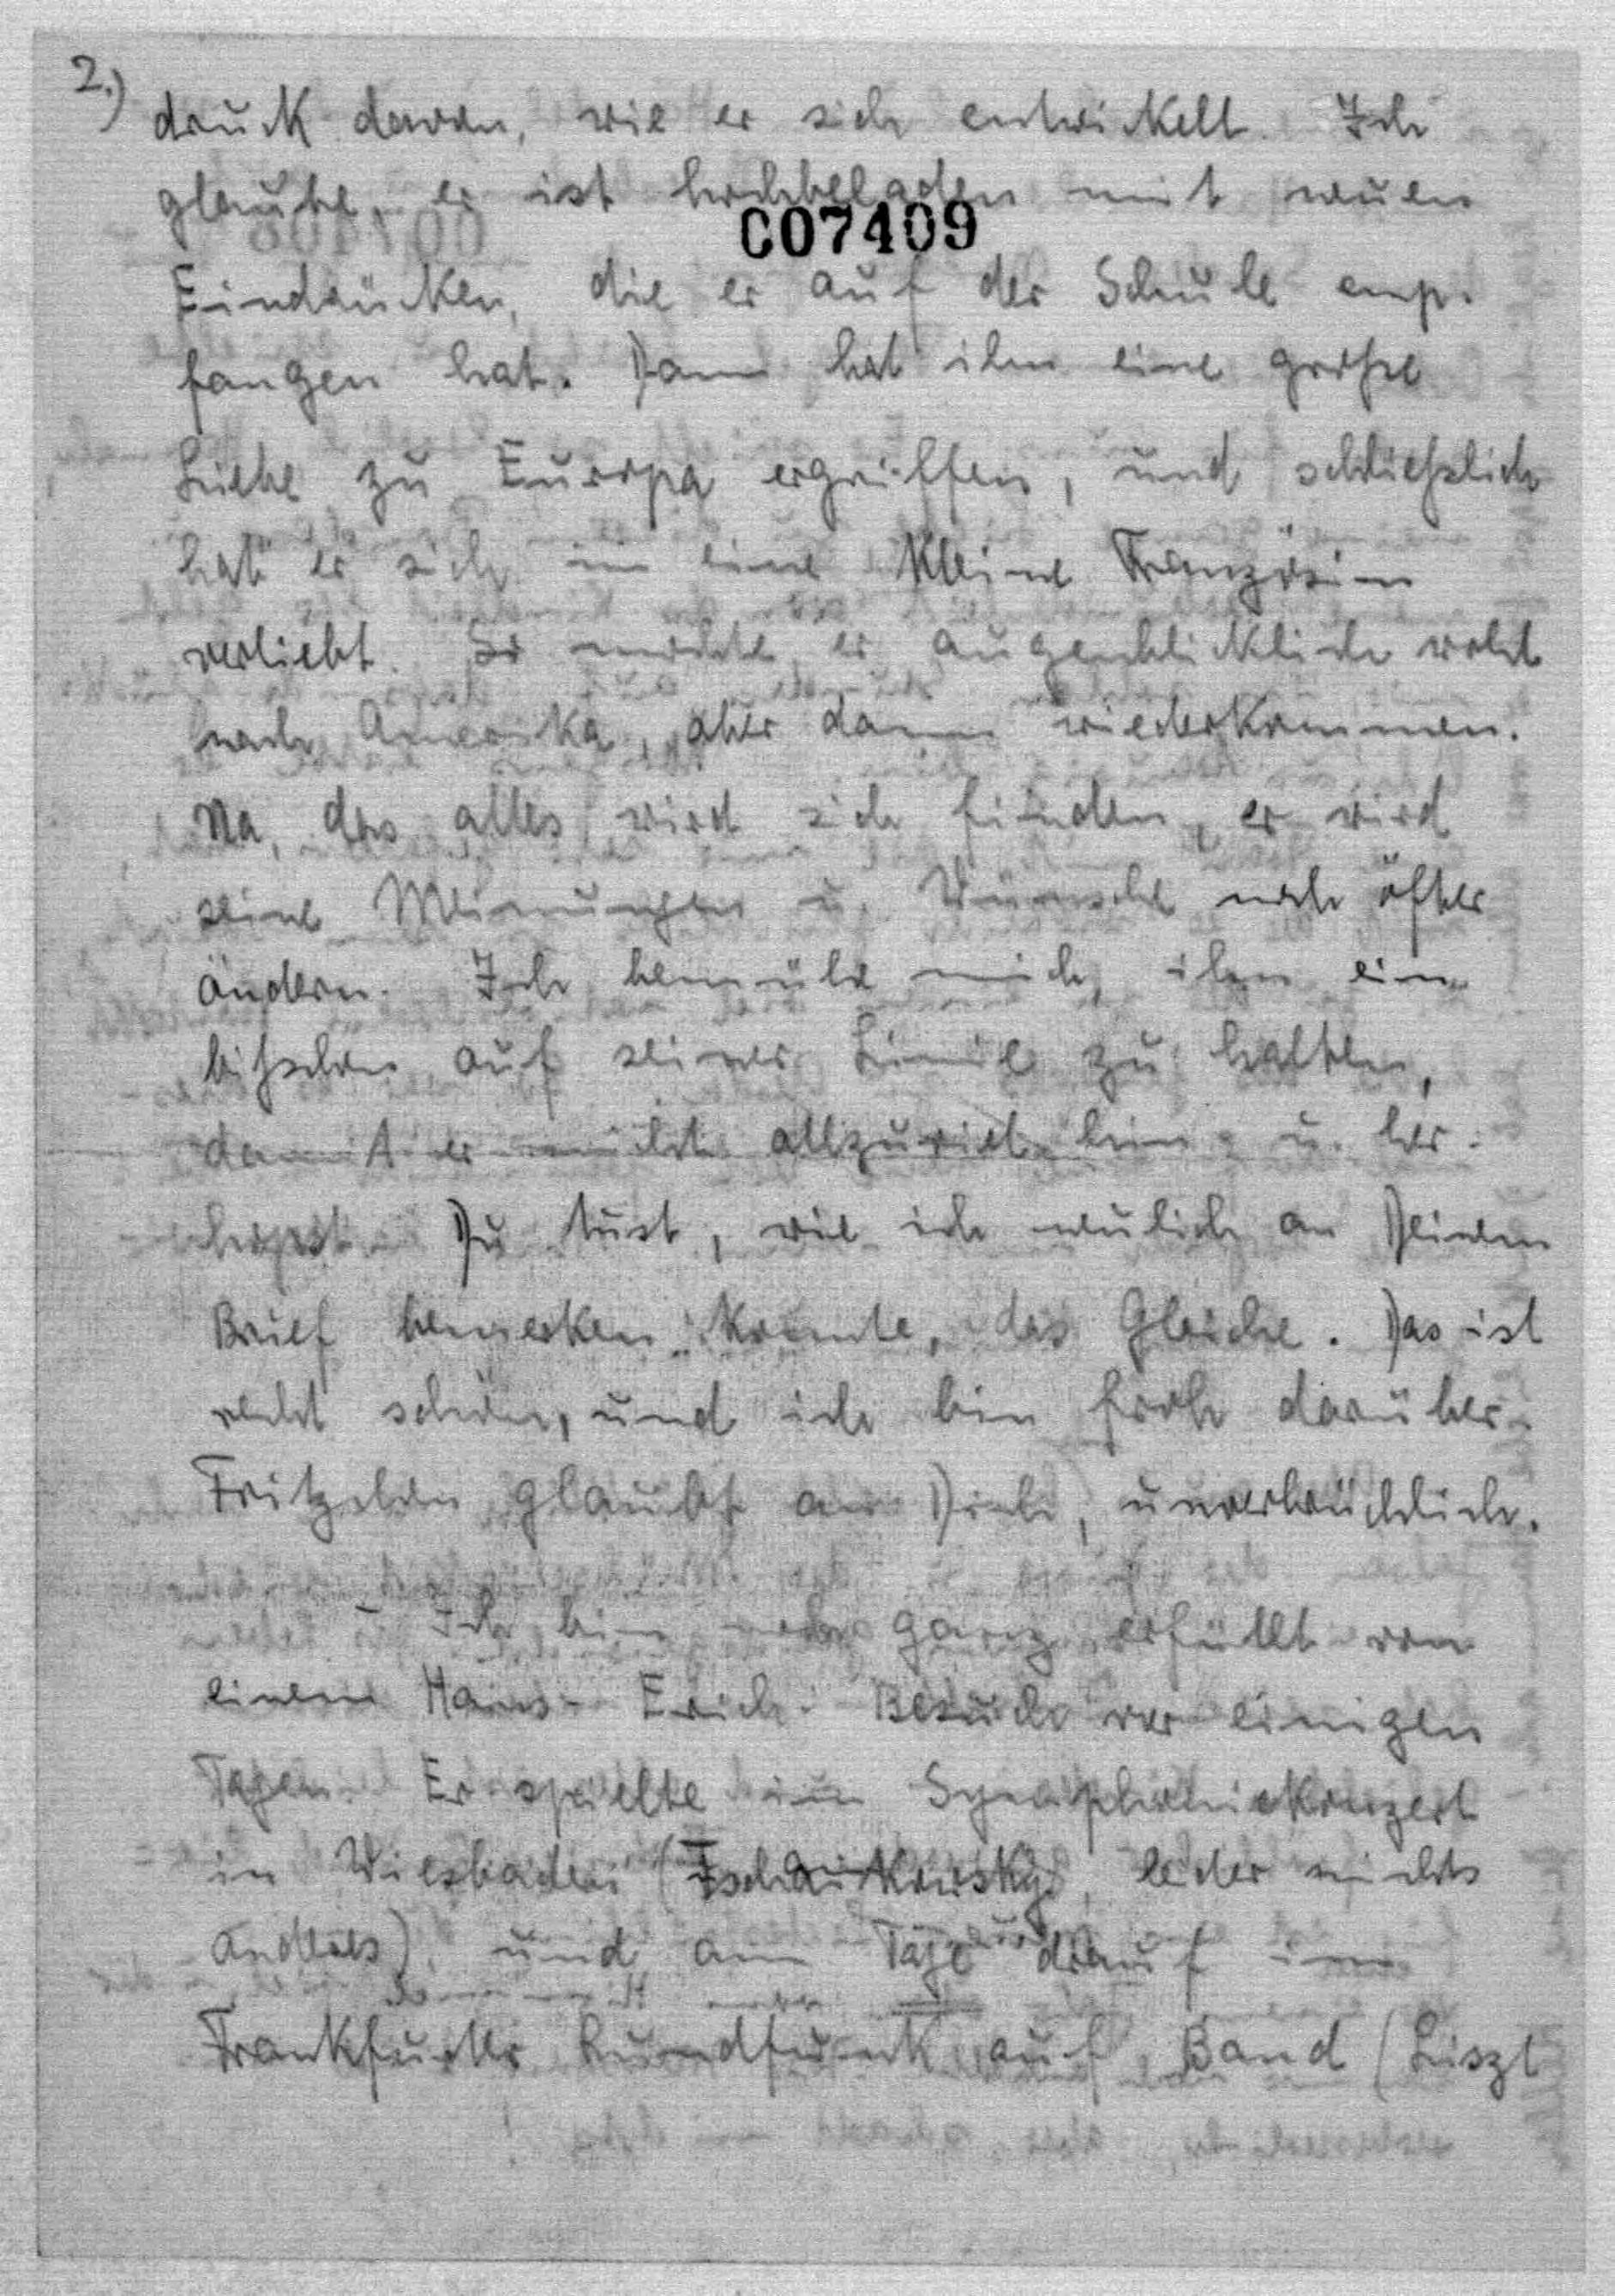 2.)
druck davon, wie er sich entwickelt. Ich
glaube, er ist hochbeladen mit neuen
C07409
Eindrücken, die er auf der Schule emp-
fangen hat. Dann hat ihn eine große
Liebe zu Europa ergriffen, und schließlich
hat er sich in eine kleine Französin
verliebt. So möchte er augenblicklich wohl
nach Amerika, aber dann wiederkommen.
Na, das alles wird sich finden, er wird
seine Meinungen u. Wünsche noch öfter
ändern. Ich bemühe mich, ihn ein
bißchen auf seiner Linie zu halten,
damit er nicht allzuviel hin- u. her-
hopst. Du tust, wie ich neulich an Deinem
Brief bemerken konnte, das Gleiche. Das ist
recht schön, und ich bin froh darüber.
Fritzchen glaubt an Dich, unverbrüchlich.
- Ich bin noch ganz erfüllt von
einem Hans-Erich-Besuch vor einigen
Tagen. Er spielte im Symphoniekonzert
in Wiesbaden (Tschaikowsky, leider nichts
anderes), und am Tage drauf im
Frankfurter Rundfunk auf Band (Liszt